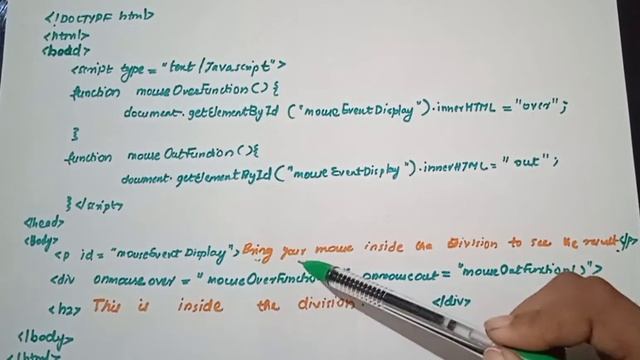 <!DOCTYPE html>
<html>
<head>
<script type = "text/Javascript">
function mouseOverFunction() {
document.getElementById ("mouseEventDisplay").innerHTML = "over";
}
function mouseOutFunction(){
document.getElementById("mouseEventDisplay").innerHTML = "out";
} </script>
</head>
<Body>
<p id = "mouseEventDisplay"> Bring your mouse inside the Division to see the result</p>
<div onmouseover = "mouseOverFunctio onmouseout = "mouseOutFunction()">
<h2> This is inside the division. </div>
</body>
</html>